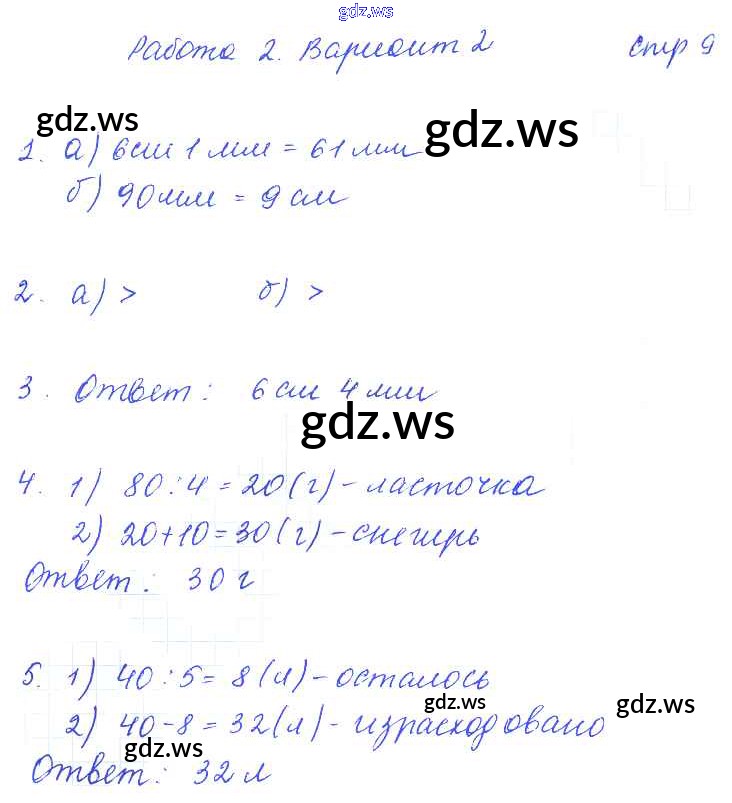 gdz.ws
Работа 2. Вариант 2 стр 9
gdz.ws gdz.ws
1. а) 6 см 1 мм = 61 мм
б) 90 мм = 9 см
2. а) > б) >
3. Ответ: 6 см 4 мм
gdz.ws
4. 1) 80 : 4 = 20 (г) - ласточка
2) 20 + 10 = 30 (г) - снегирь
Ответ: 30 г
5. 1) 40 : 5 = 8 (л) - осталось
gdz.ws gdz.ws
2) 40 - 8 = 32 (л) - израсходовано
gdz.ws
Ответ: 32 л